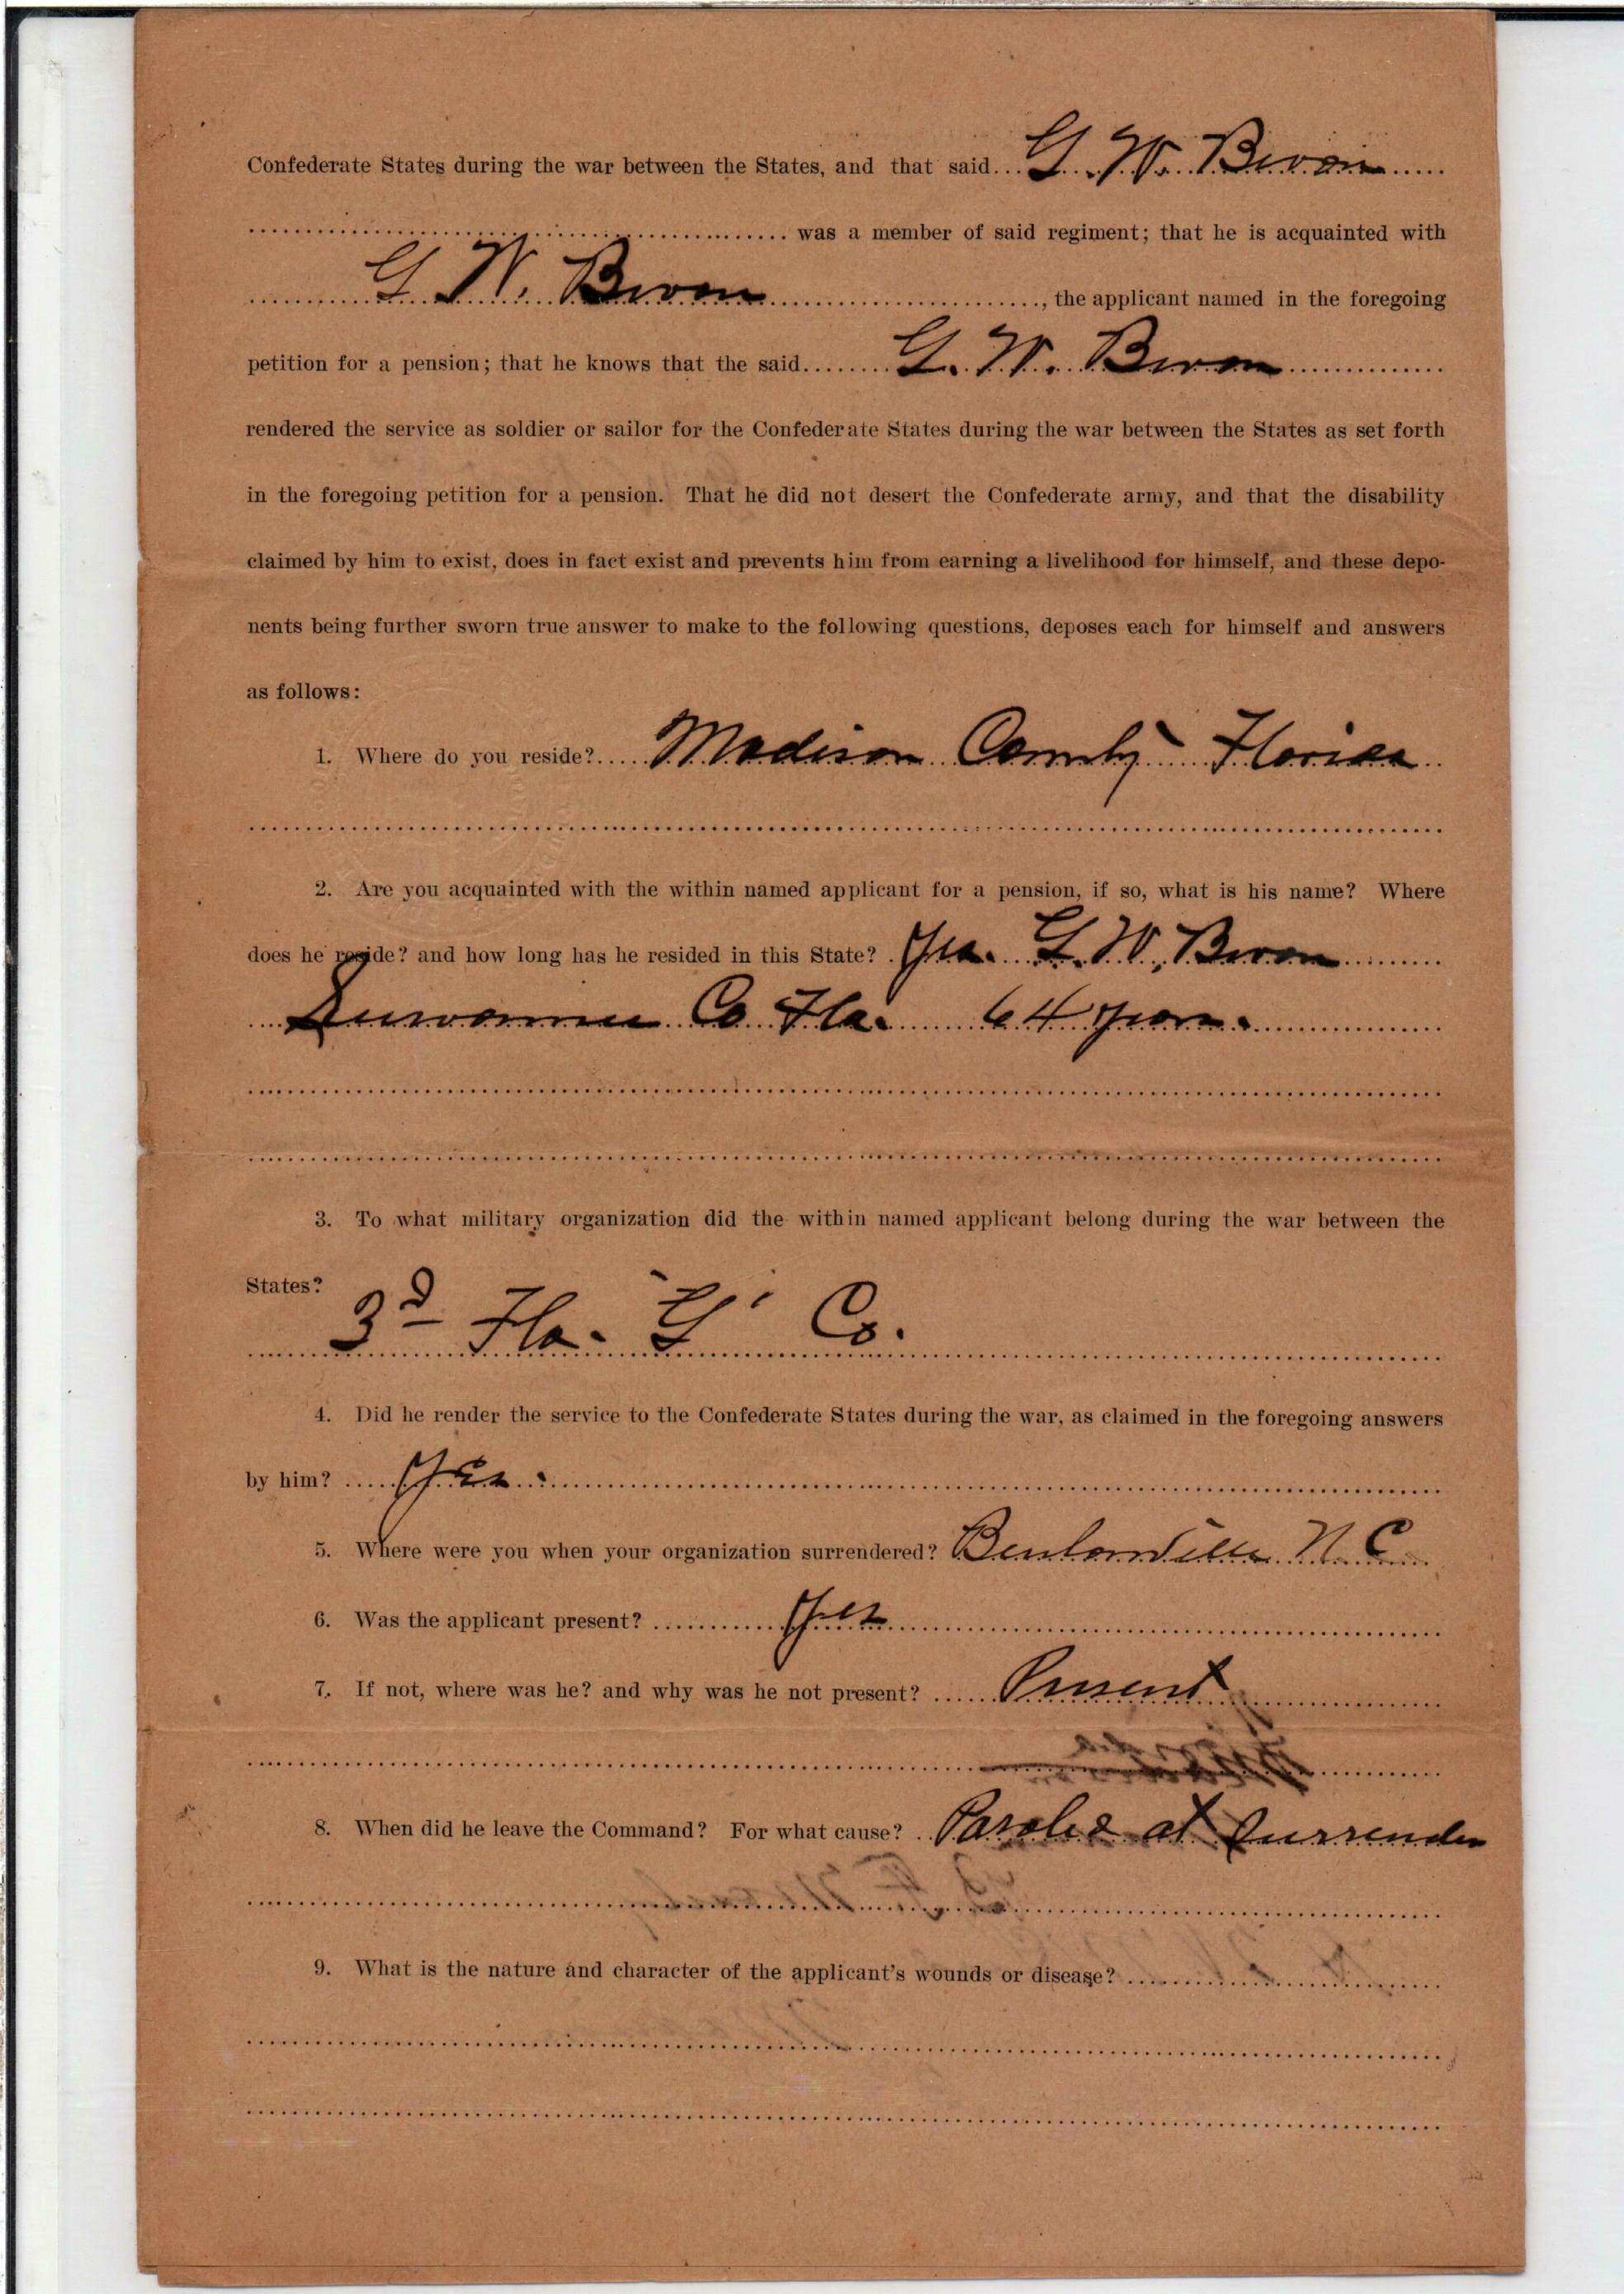 Confederate States during the war between the States, and that said G. W. Bevan
was a member of said regiment; that he is acquainted with
G. W. Bevan, the applicant named in the foregoing
petition for a pension; that he knows that the said G. W. Bevan
rendered the service as soldier or sailor for the Confederate States during the war between the States as set forth
in the foregoing petition for a pension. That he did not desert the Confederate army, and that the disability
claimed by him to exist, does in fact exist and prevents him from earning a livelihood for himself, and these depo-
nents being further sworn true answer to make to the following questions, deposes each for himself and answers
as follows:
1. Where do you reside? Madison County Florida
2. Are you acquainted with the within named applicant for a pension, if so, what is his name? Where
does he reside? and how long has he resided in this State? Yes. G. W. Bevan
Suwannee Co Fla. 64 years.
3. To what military organization did the within named applicant belong during the war between the
States?
3d Fla. "G" Co.
4. Did he render the service to the Confederate States during the war, as claimed in the foregoing answers
by him? Yes.
5. Where were you when your organization surrendered? Bentonville N. C
6. Was the applicant present? Yes
7. If not, where was he? and why was he not present? Present
8. When did he leave the Command? For what cause? Paroled at Surrender
9. What is the nature and character of the applicant's wounds or disease?